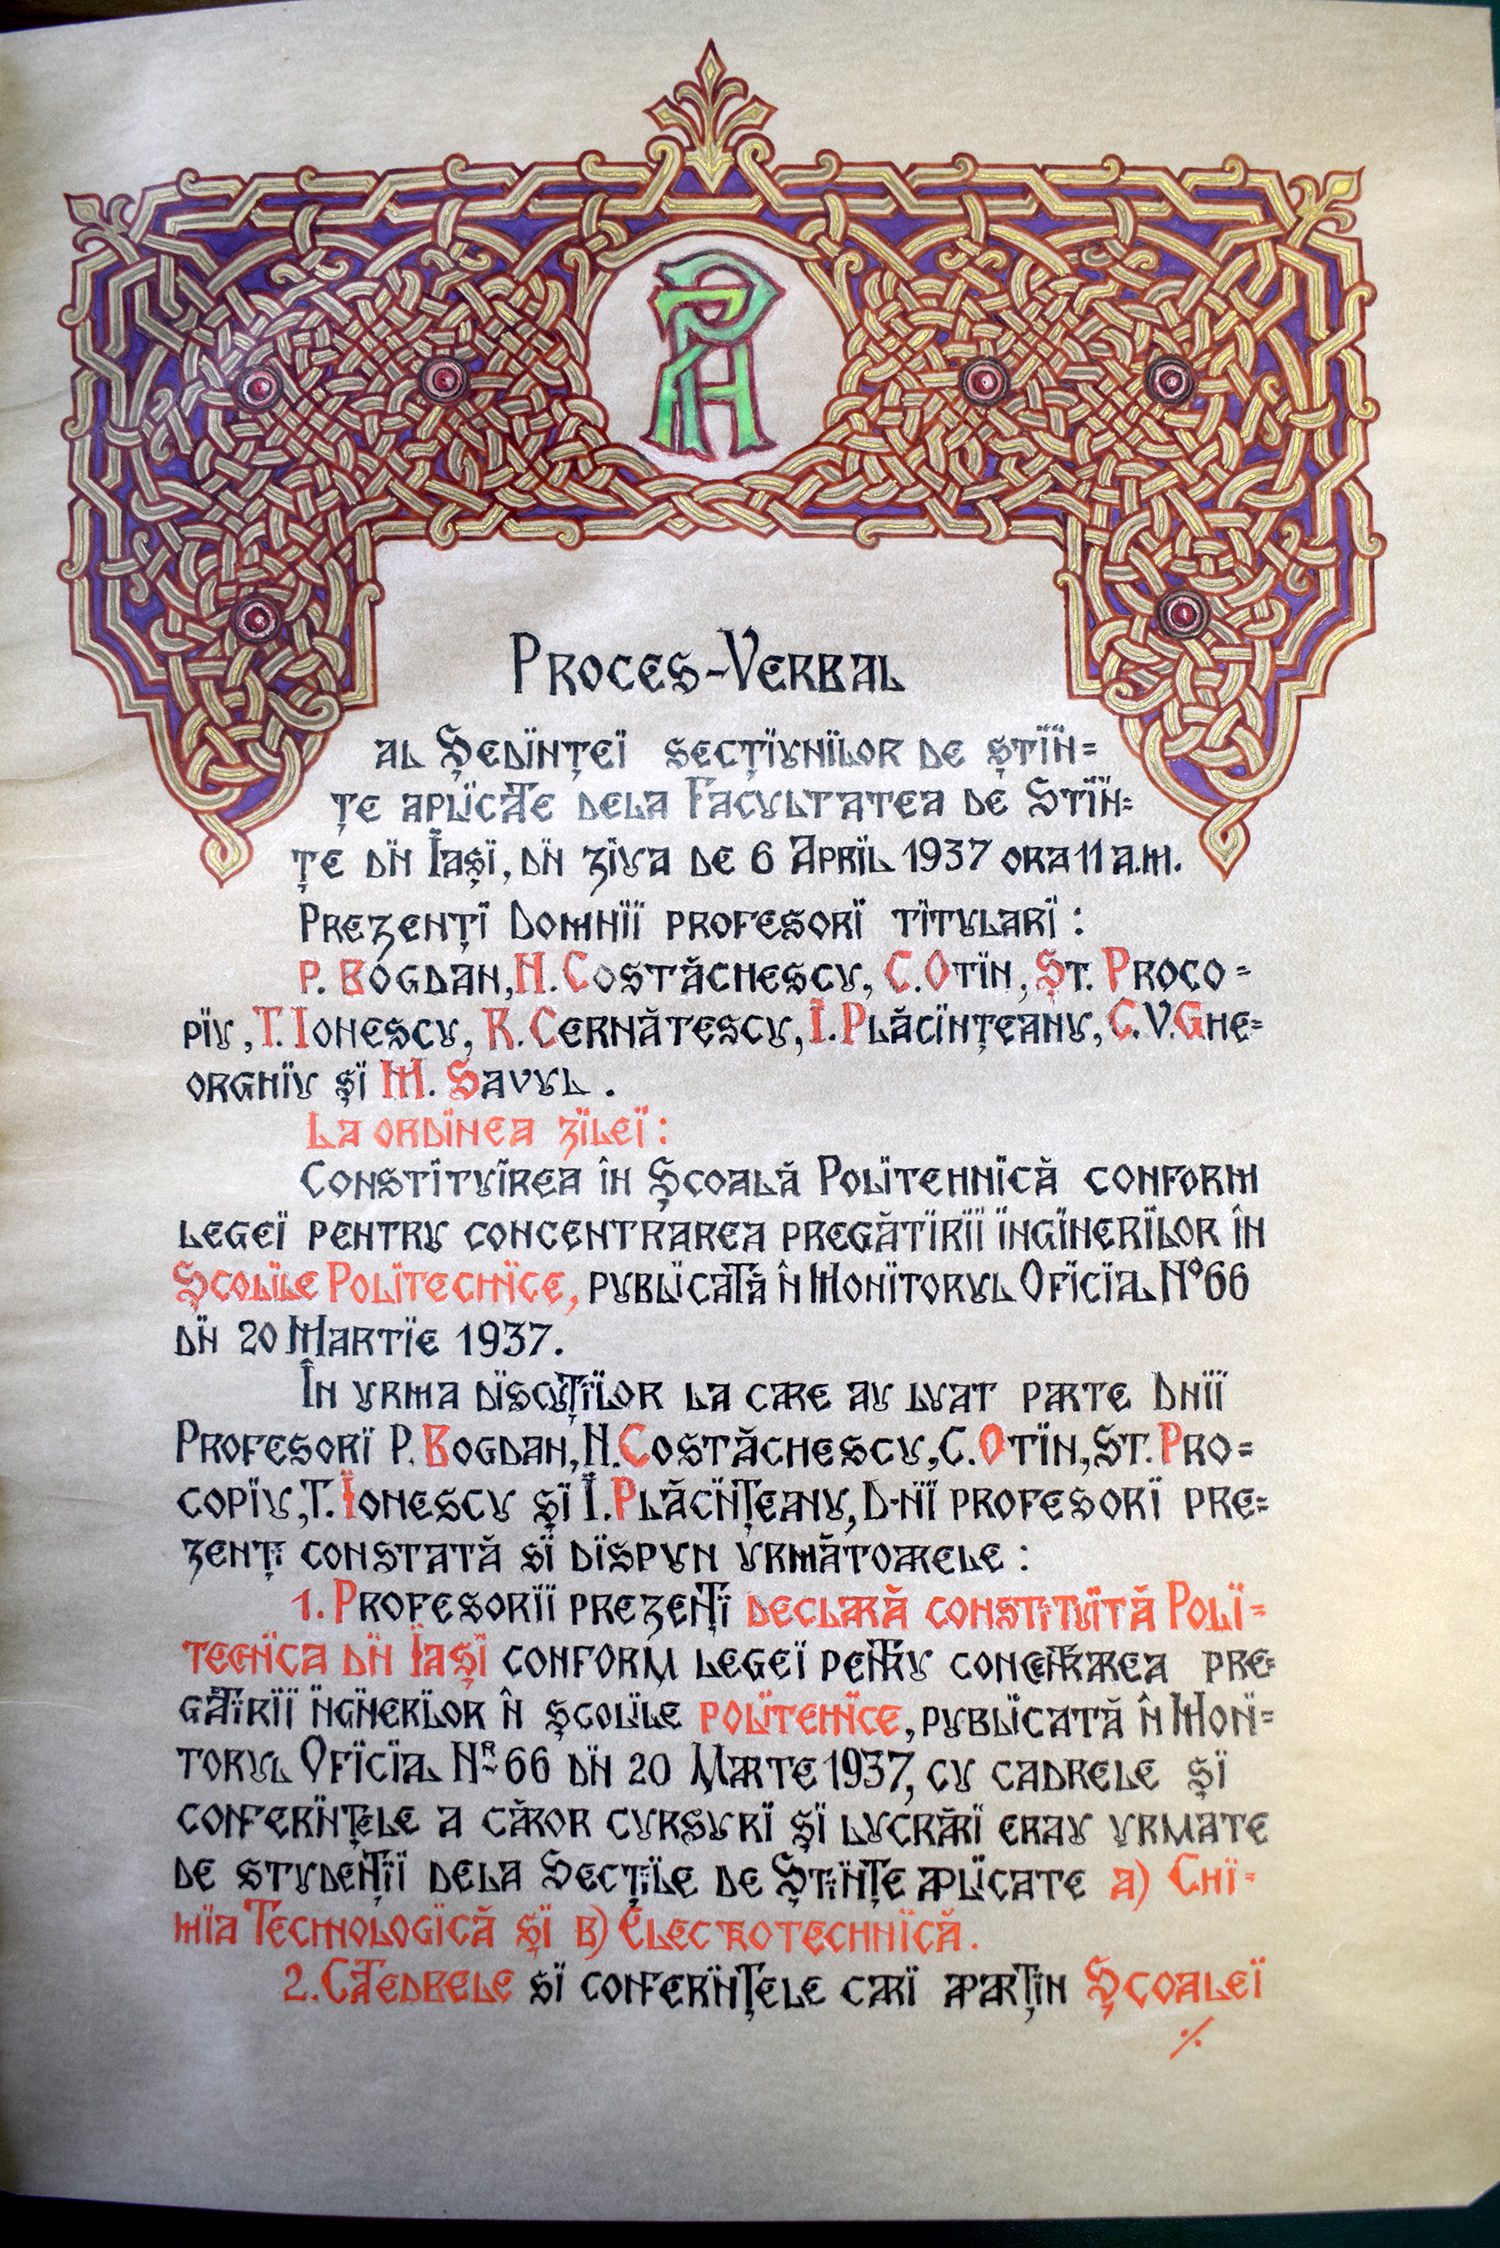 PA
Proces-Verbal
al Ședinței secțiunilor de știin=
țe aplicate dela Facultatea de Stiin=
țe din Iași, din ziua de 6 April 1937 ora 11 a.m.
Prezenți Domnii profesori titulari :
P. Bogdan, N. Costăchescu, C. Otin, Șt. Proco=
piu, T. Ionescu, R. Cernătescu, I. Plăcințeanu, C. V. Ghe=
orghiu și M. Savul .
La ordinea zilei :
Constituirea în Școală Politehnică conform
legei pentru concentrarea pregătirii inginerilor în
Școlile Politechice, publicată în Monitorul Oficial No 66
din 20 Martie 1937.
În urma discuțiilor la care au luat parte Dnii
Profesori P. Bogdan, N. Costăchescu, C. Otin, St. Pro=
copiu, T. Ionescu și I. Plăcințeanu, D-nii profesori pre=
zenți constată si dispun următoarele :
1. Profesorii prezenți declară constituită Poli=
technica din Iași conform legei pentru concentrarea pre=
gătirii inginerilor în școlile politehnice, publicată în Moni=
torul Oficial Nr 66 din 20 Marte 1937, cu cadrele și
conferințele a căror cursuri și lucrări erau urmate
de studenții dela Secțiile de Științe aplicate a) Chi=
mia Technologică și b) Electrotechnică.
2. Catedrele si conferințele cari aparțin Școalei
./.